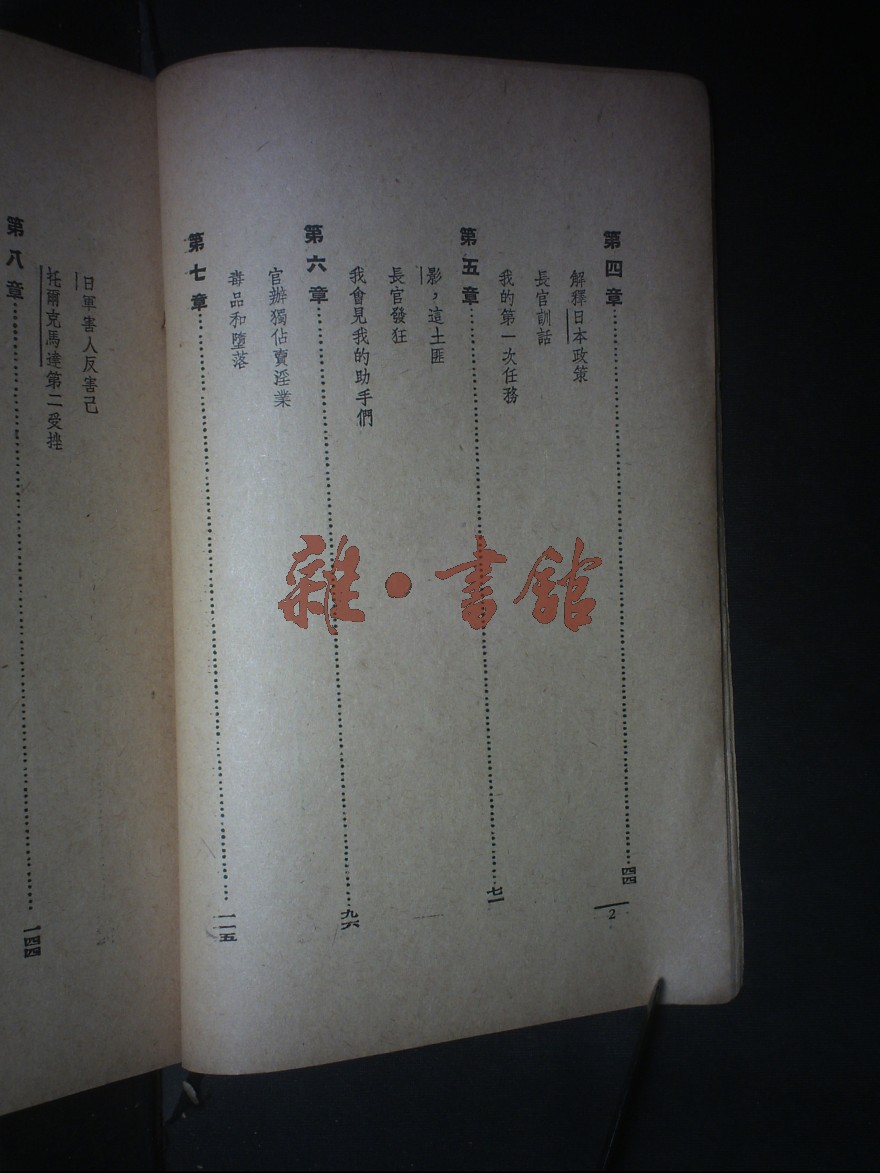 第四章……四四
解釋日本政策
長官訓話
我的第一次任務
第五章……七一
影，這土匪
長官發狂
我會見我的助手們
第六章……九六
官辦獨佔賣淫業
毒品和墮落
第七章……一一五
2
日軍害人反害己
托爾克馬達第二受挫
第八章……一四四
雜·書館